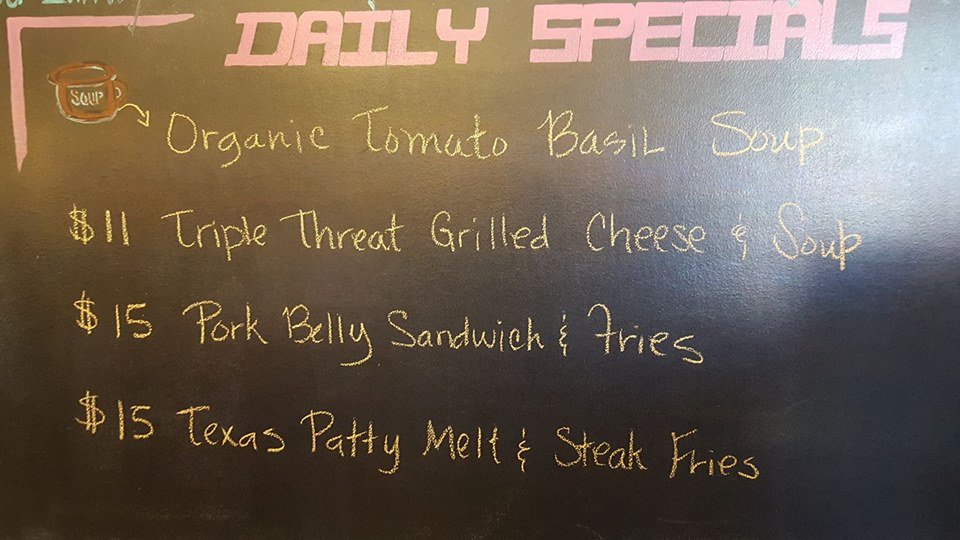 DAILY SPECIALS
SOUP
Organic Tomato Basil Soup
$11 Triple Threat Grilled Cheese & Soup
$15 Pork Belly Sandwich & Fries
$15 Texas Patty Melt & Steak Fries